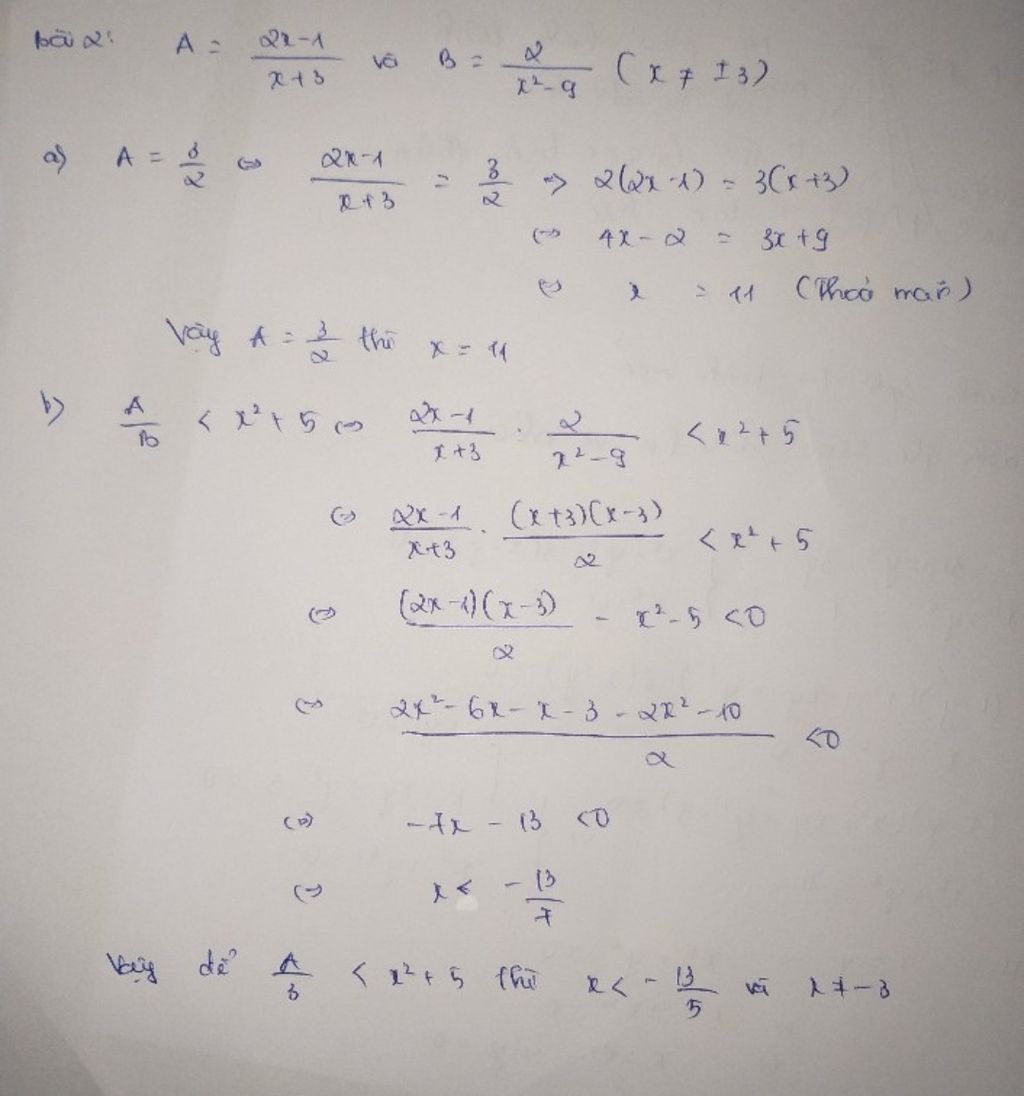 bài 2: A = \frac{2x-1}{x+3} và B = \frac{2}{x²-9} ( x ≠ ±3)
a) A = \frac{3}{2} <=> \frac{2x-1}{x+3} = \frac{3}{2} => 2(2x-1) = 3(x+3)
<=> 4x - 2 = 3x + 9
<=> x = 11 (Thoả mãn)
Vậy A = \frac{3}{2} thì x = 11
b) \frac{A}{B} < x² + 5 <=> \frac{2x-1}{x+3} . \frac{2}{x²-9} < x² + 5
<=> \frac{2x-1}{x+3} . \frac{(x+3)(x-3)}{2} < x² + 5
<=> \frac{(2x-1)(x-3)}{2} - x² - 5 < 0
<=> \frac{2x² - 6x - x - 3 - 2x² - 10}{2} < 0
<=> -7x - 13 < 0
<=> x < -\frac{13}{7}
Vậy để \frac{A}{B} < x² + 5 thì x < -\frac{13}{5} và x ≠ -3